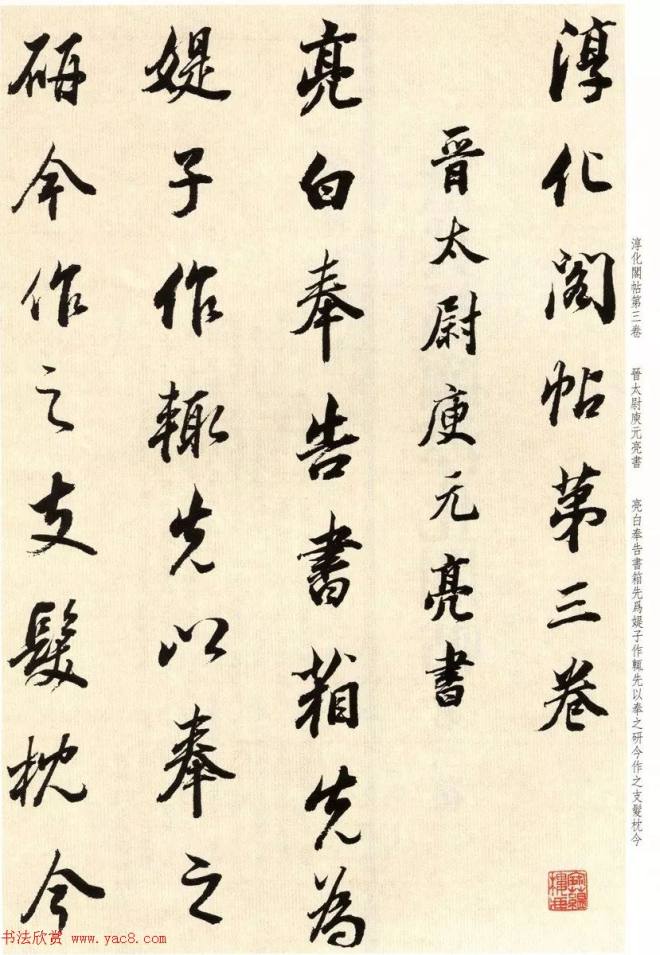 淳化閣帖第三卷
晉太尉庾元亮書
亮白奉告書箱先為
媞子作輒先以奉之
研今作之支髮枕今
淳化閣帖第三卷 晉太尉庾元亮書 亮白奉告書箱先爲媞子作輒先以奉之研今作之支髮枕今
书法欣赏 www.yac8.com